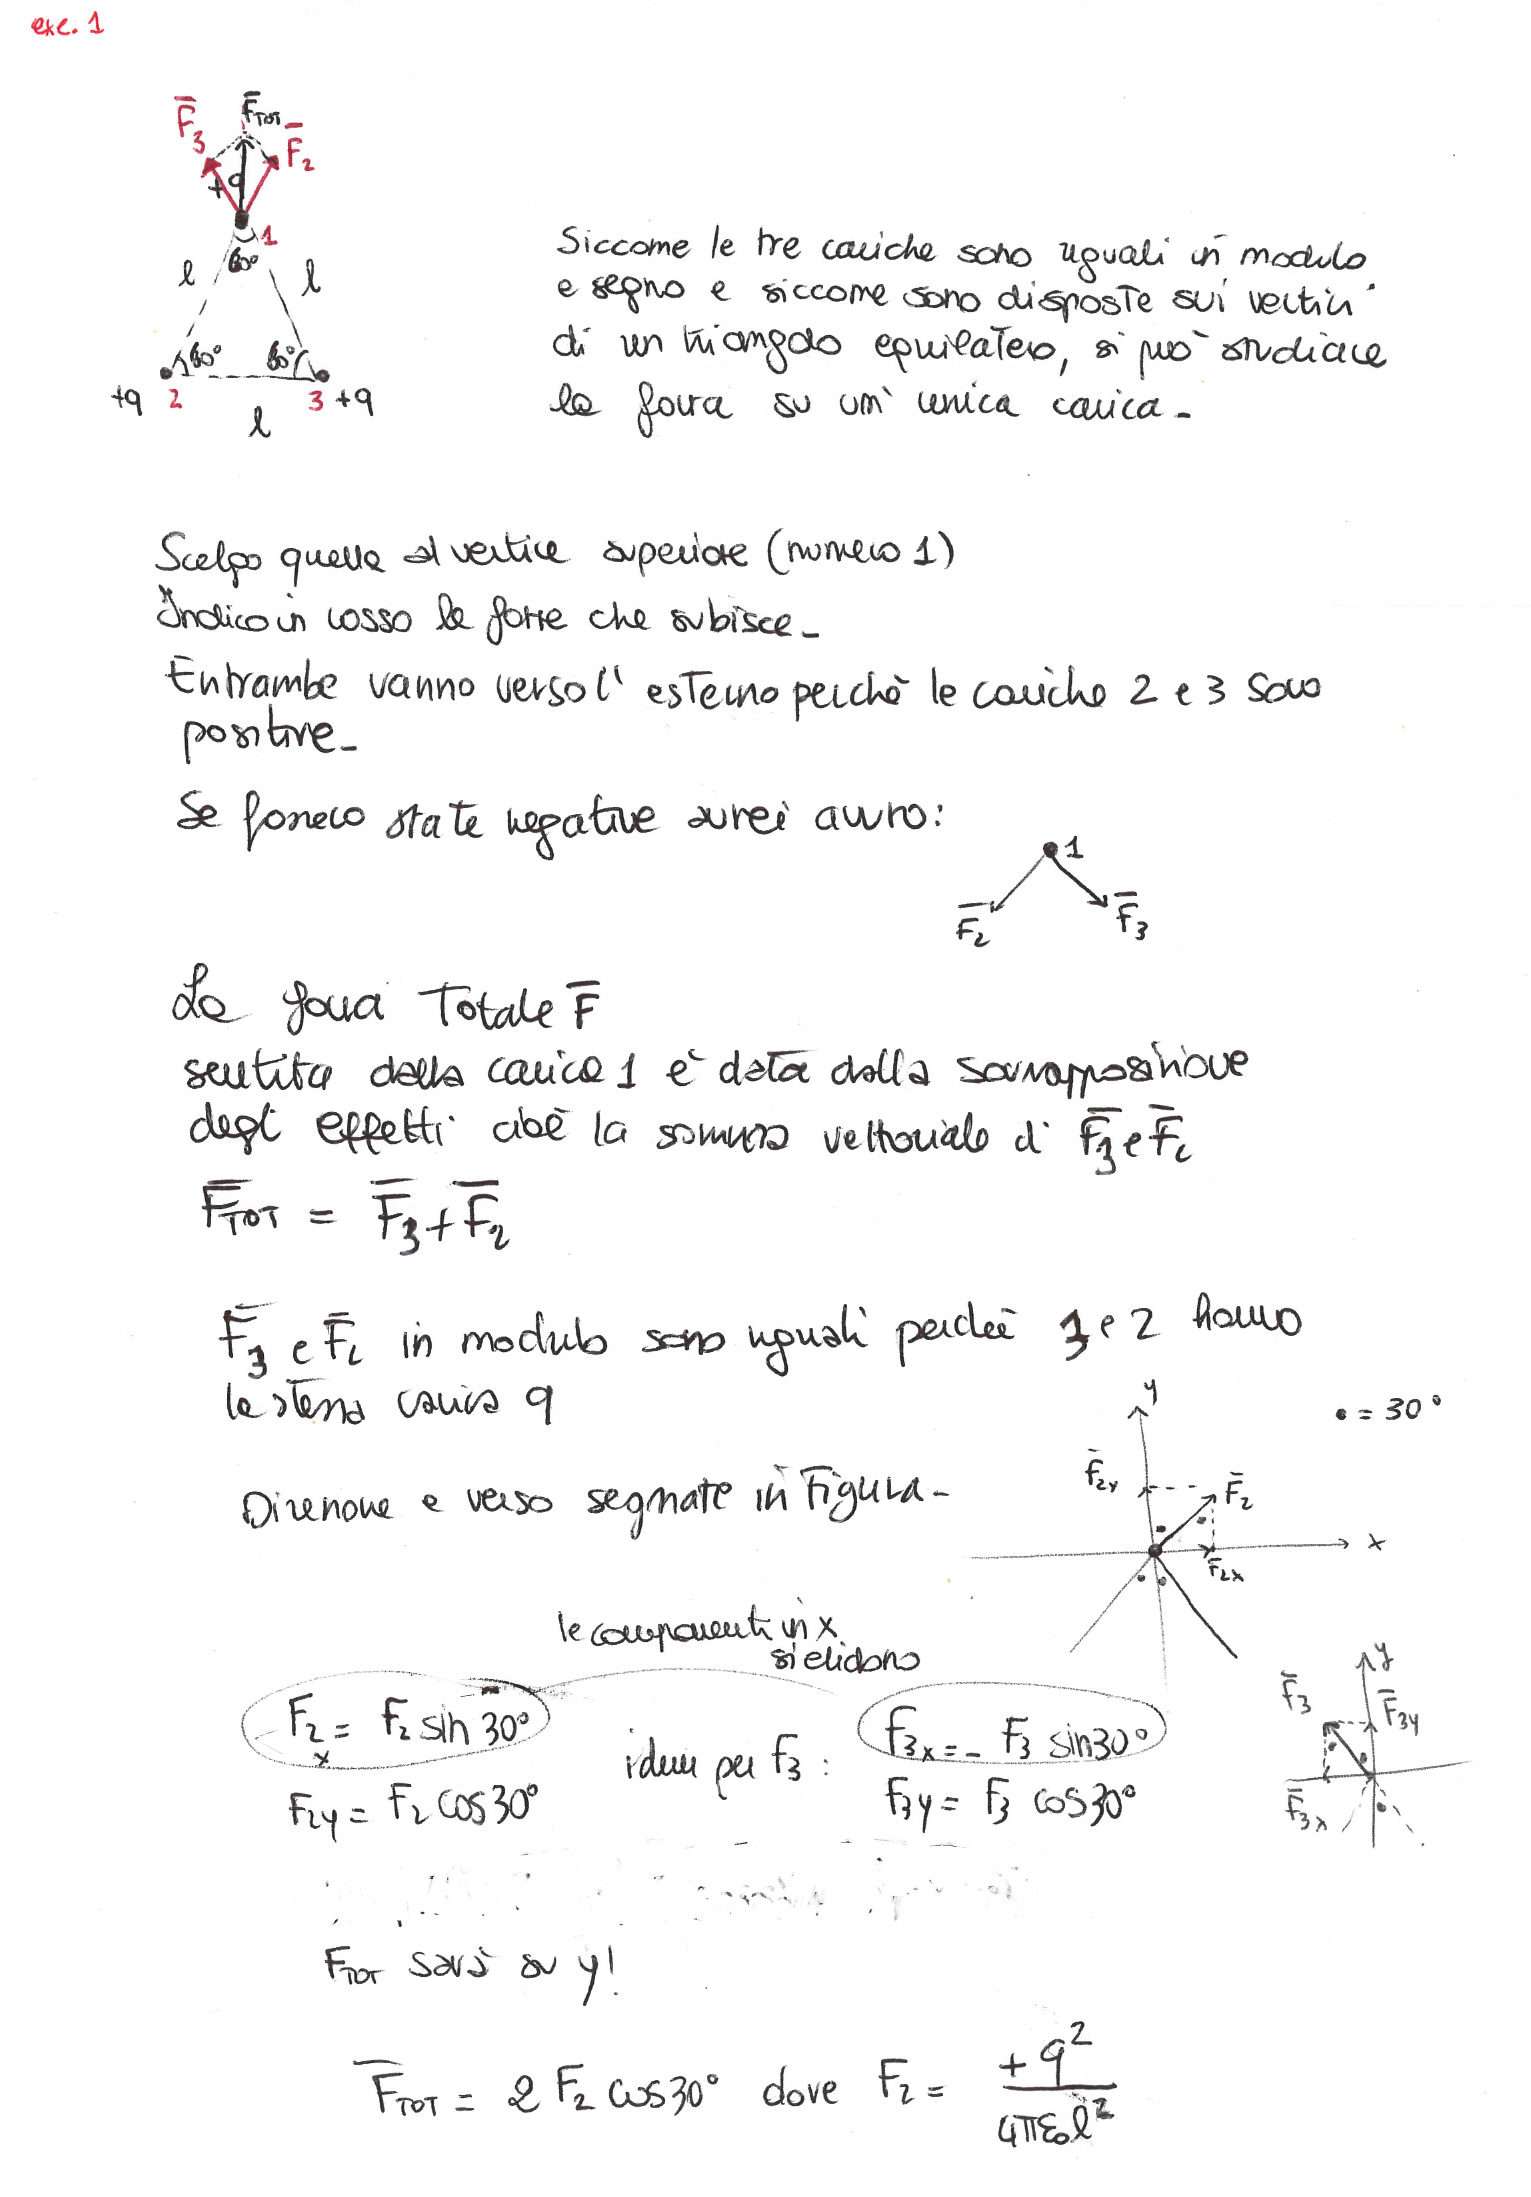 exe. 1
F̅₃
F̅TOT
F̅₂
+q
1
60°
l
l
60°
60°
+q 2
3 +q
l
Siccome le tre cariche sono uguali in modulo
e segno e siccome sono disposte sui vertici
di un triangolo equilatero, si può studiare
la forza su un' unica carica -
Scelgo quella al vertice superiore (numero 1)
Indico in rosso le forze che subisce -
Entrambe vanno verso l' esterno perchè le cariche 2 e 3 sono
positive -
Se fossero state negative avrei avuto:
1
F̅₂
F̅₃
La forza Totale F̅
sentita dalla carica 1 è data dalla sovrapposizione
degli effetti cioè la somma vettoriale di F̅₃ e F̅₂
F̅TOT = F̅₃ + F̅₂
F̅₃ e F̅₂ in modulo sono uguali perchè 3 e 2 hanno
la stessa carica q
y
• = 30°
F̅₂y
F̅₂
Direzione e verso segnate in Figura -
x
F̅₂x
le componenti in x
si elidono
y
F̅₃
F̅₃y
F₂x = F₂ sin 30°
idem per F₃ :
F₃x = - F₃ sin30°
F₂y = F₂ cos30°
F₃y = F₃ cos30°
F̅₃x
FTOT sarà su y!
F̅TOT = 2 F₂ cos30° dove F₂ = +q² / 4πε₀l²